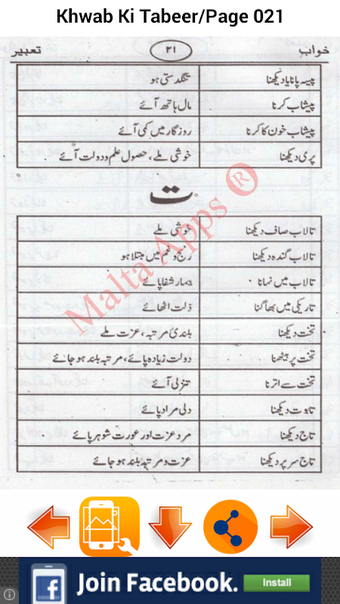 Khwab Ki Tabeer/Page 021
خواب ۲۱ تعبیر
پیسہ پانا یا دیکھنا تنگدستی ہو
پیشاب کرنا مال ہاتھ آئے
پیشاب خون کا کرنا روزگار میں کمی آئے
پری دیکھنا خوشی ملے، حصول علم و دولت آئے
ت
تالاب صاف دیکھنا خوشی ملے
تالاب گندہ دیکھنا رنج و غم میں مبتلا ہو
تالاب میں نہانا بیمار شفا پائے
تاریکی میں بھاگنا ذلت اٹھائے
تخت دیکھنا بلندی مرتبہ، عزت ملے
تخت پر بیٹھنا دولت زیادہ پائے، مرتبہ بلند ہو جائے
تخت سے اترنا تنزلی آئے
تابوت دیکھنا دلی مراد پائے
تاج دیکھنا مرد عزت اور عورت شوہر پائے
تاج سر پر دیکھنا عزت و مرتبہ بلند ہو جائے
Malta Apps ®
Join Facebook. Install